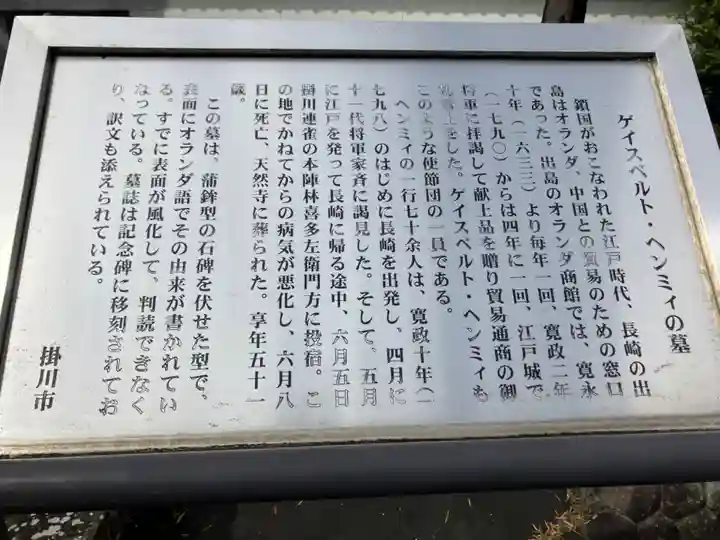 ゲイスベルト・ヘンミィの墓
鎖国がおこなわれた江戸時代、長崎の出
島はオランダ、中国との貿易のための窓口
であった。出島のオランダ商館では、寛永
十年（一六三三）より毎年一回、寛政二年
（一七九〇）からは四年に一回、江戸城で
将軍に拝謁して献上品を贈り貿易通商の御
礼言上をした。ゲイスベルト・ヘンミィも
このような使節団の一員である。
ヘンミィの一行七十余人は、寛政十年（一
七九八）のはじめに長崎を出発し、四月に
十一代将軍家斉に謁見した。そして、五月
に江戸を発って長崎に帰る途中、六月五日
掛川連雀の本陣林喜多左衛門方に投宿。こ
の地でかねてからの病気が悪化し、六月八
日に死亡、天然寺に葬られた。享年五十一
歳。
この墓は、蒲鉾型の石碑を伏せた型で、
表面にオランダ語でその由来が書かれてい
る。すでに表面が風化して、判読できなく
なっている。墓誌は記念碑に移刻されてお
り、訳文も添えられている。
掛川市